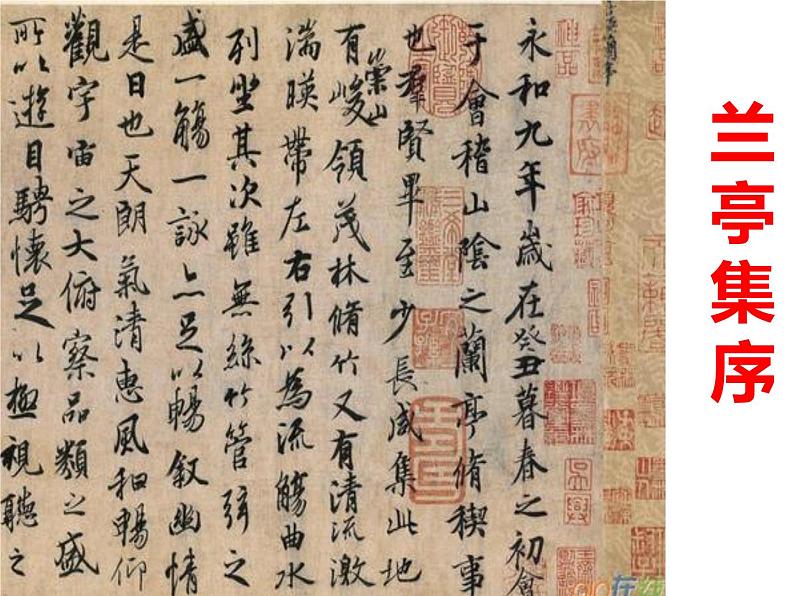 兰亭集序
永和九年歲在癸丑暮春之初會
于會稽山陰之蘭亭脩稧事
也羣賢畢至少長咸集此地
有崇山峻領茂林脩竹又有清流激
湍暎帶左右引以為流觴曲水
列坐其次雖無絲竹管弦之
盛一觴一詠亦足以暢叙幽情
是日也天朗氣清惠風和暢仰
觀宇宙之大俯察品類之盛
所以遊目騁懷足以極視聽之